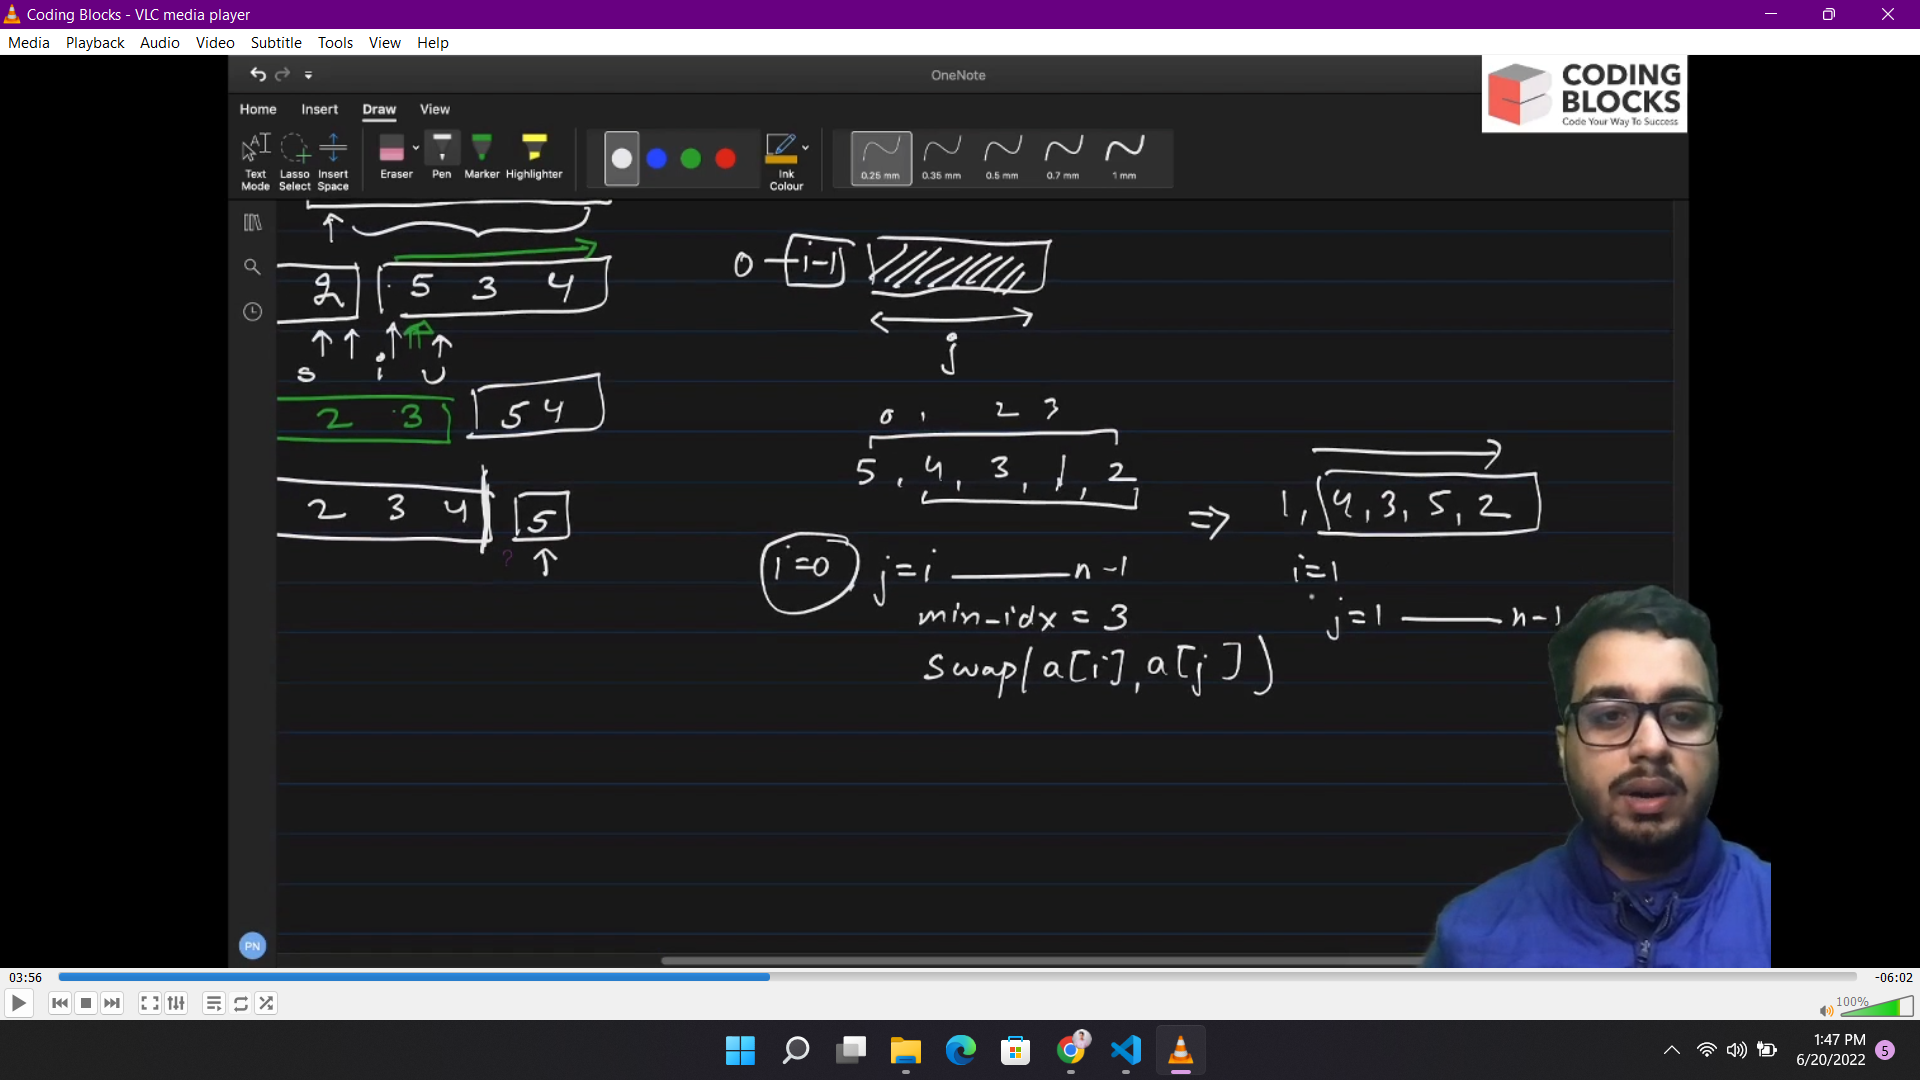 Coding Blocks - VLC media player
Media Playback Audio Video Subtitle Tools View Help
OneNote
CODING
BLOCKS
Code Your Way To Success
Home Insert Draw View
Text Mode
Lasso Select
Insert Space
Eraser
Pen
Marker
Highlighter
Ink Colour
0.25 mm
0.35 mm
0.5 mm
0.7 mm
1 mm
0 — i-1
2 5 3 4
s i
j
2 3 5 4
0 1 2 3
5, 4, 3, 1, 2
⇒ 1, 4, 3, 5, 2
2 3 4 5
?
i=0 j=i —— n-1
min-idx = 3
swap(a[i], a[j])
i=1
j=1 —— n-1
PN
03:56
-06:02
100%
1:47 PM
6/20/2022
5